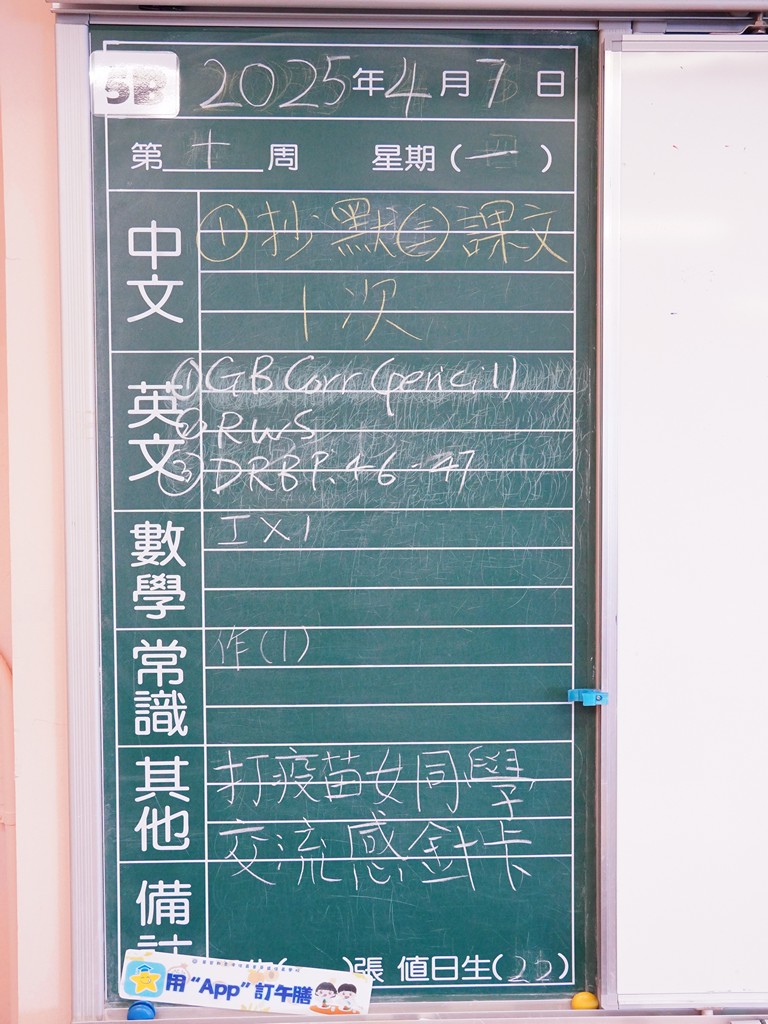 5B 2025年4月7日
第十周 星期(一)
中文
①抄默(七)課文
1次
英文
①GB Corr (pencil)
②RWS
③DRB P.46-47
數學
工×1
常識
作(1)
其他
打疫苗女同學
交流感針卡
備註
張 值日生(22)
用“App”訂午膳